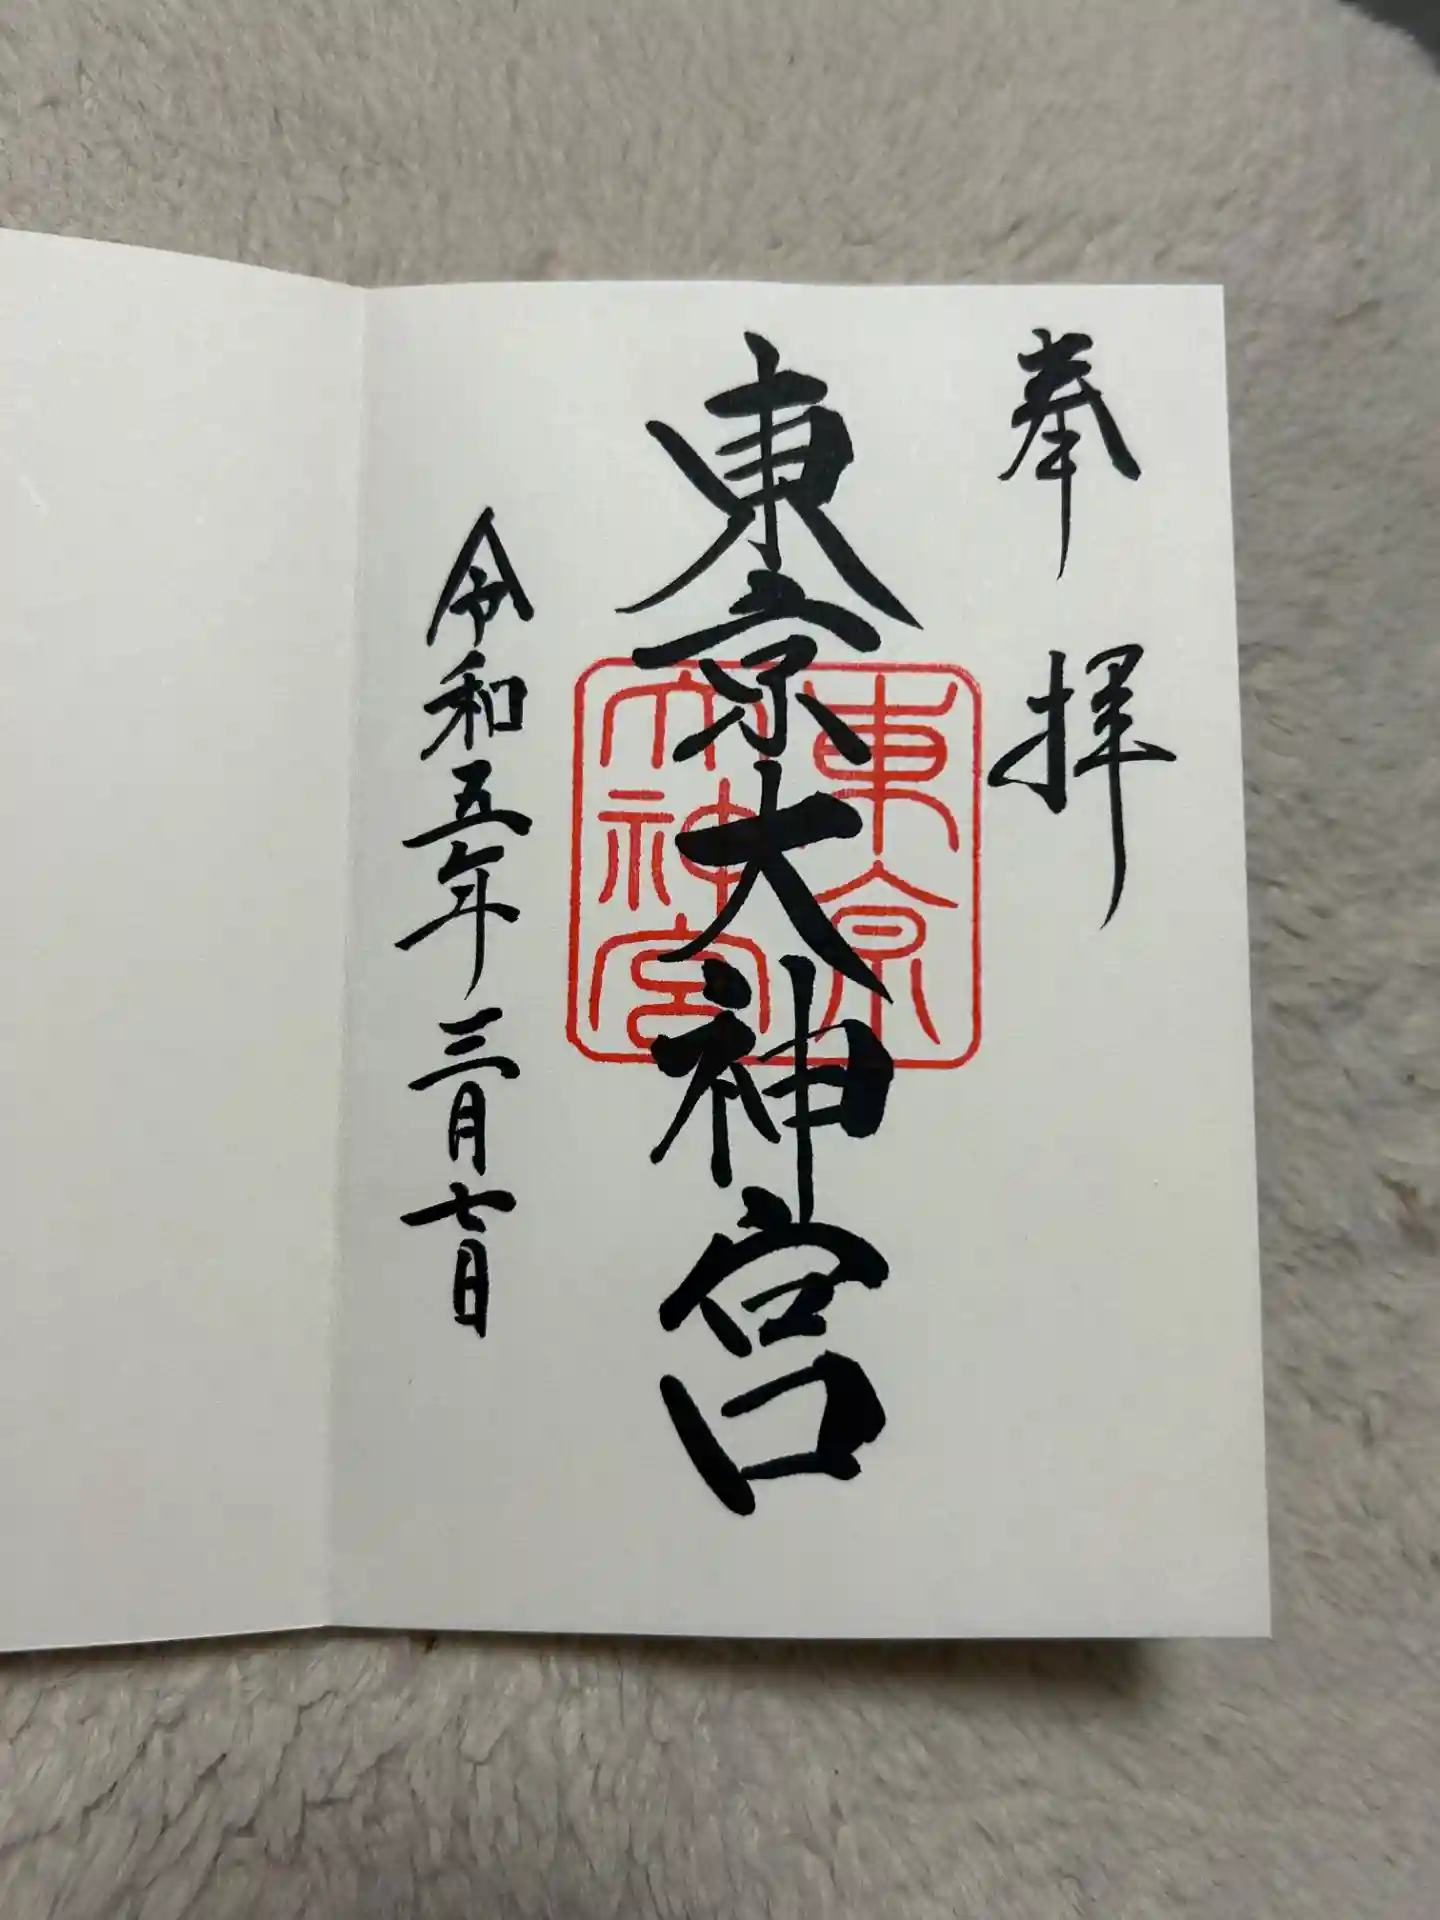 奉拝
東京大神宮
東京
大神宮
令和五年三月七日